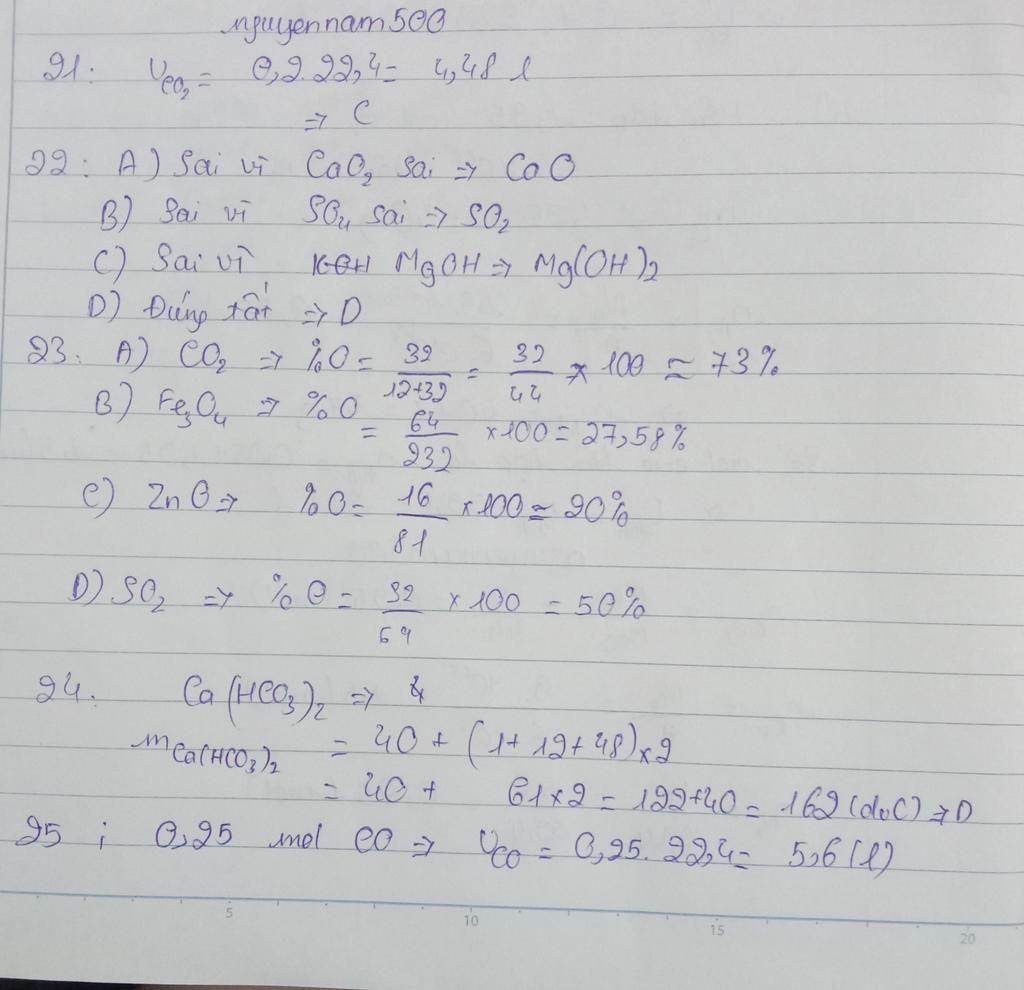 nguyennam500
21: VCO₂ = 0,2.22,4 = 4,48 l
=> C
22: A) Sai vì CaO₂ sai => CaO
B) Sai vì SO₄ sai => SO₂
C) Sai vì KOH MgOH => Mg(OH)₂
D) Đúng tất => D
23: A) CO₂ => %O = 32/12+32 = 32/44 × 100 ≃ 73%
B) Fe₃O₄ => %O = 64/232 × 100 = 27,58%
C) ZnO => %O = 16/81 × 100 ≃ 20%
D) SO₂ => %O = 32/64 × 100 = 50%
24. Ca(HCO₃)₂ =>
mCa(HCO₃)₂ = 40 + (1+12+48)×2
= 40 + 61×2 = 122+40 = 162 (đvC) => D
25 : 0,25 mol CO => VCO = 0,25.22,4 = 5,6 (l)
5 10 15 20